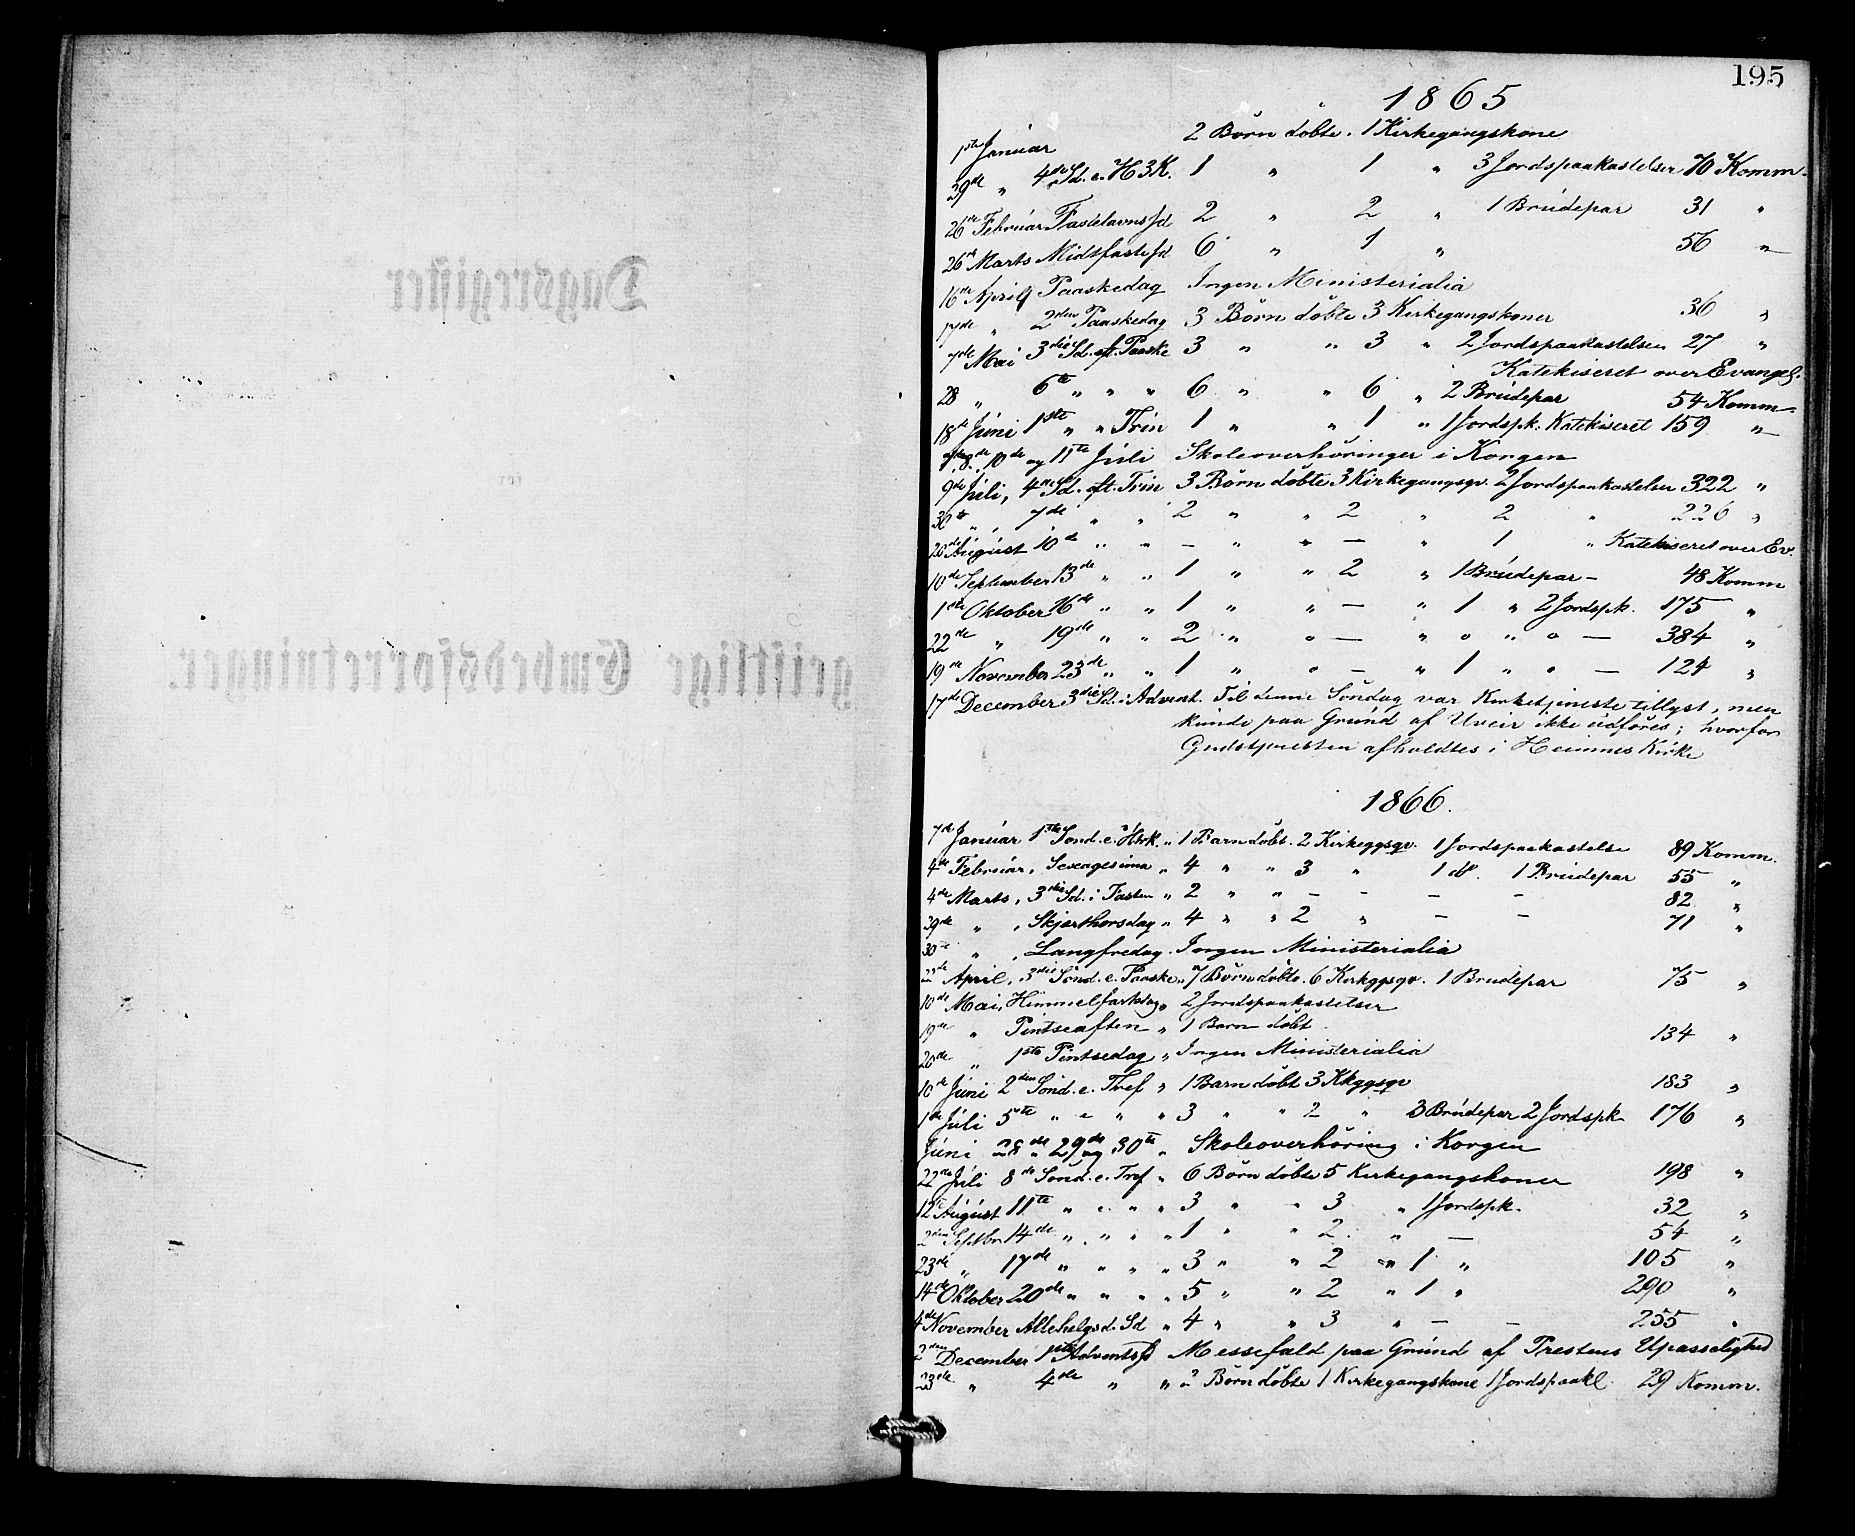 195
1865
1ste Januar 2 Børn døbte. 1 Kirkegangskone
29de " 4de Sd. e. H 3K. 1 " 1 " 3 Jordspaakastelser 70 Komm.
26de Februar Fastelavns Sd 2 " 2 " 1 Brudepar 31 "
26de Marts Midfaste Sd 6 " 1 " 56 "
16de April Paaskedag Ingen Ministerialia
17de " 2den Paaskedag 3 Børn døbte 3 Kirkegangskoner 36 "
7de Mai 3die Sd. eft. Paaske 3 " " 3 " 2 Jordspaakastelser 27 "
Katekiseret over Evangel.
28 " 6te " " " 6 " " 6 " 2 Brudepar 54 Komm.
18de Juni 1ste " " Trin 1 " " 1 " 1 Jordspk. Katekiseret 159 "
8de, 10de og 11te Juli Skoleoverhøringer i Korgen
9de Juli, 4de Sd. eft. Trin 3 Børn døbte 3 Kirkegangsqv. 2 Jordspaakastelser 322 "
30te " , 7de " " 2 " " 2 " 2 " 226 "
20de August 10de " " — " " — " 1 " Katekiseret over Ev.
10de September 13de " " 1 " " 2 " 1 Brudepar — 48 Komm
1ste Oktober 16de " " 1 " " — " 1 " 2 Jordspk. 175 "
22de " 19de " " 2 " " — " " " " — 384 "
19de November 23de " " 1 " " — " 1 " " — 124 "
17de December 3die Sd. i Advent. Til denne Søndag var Kirketjeneste tillyst, men
kunde paa Grund af Uveir ikke udføres; hvorfor
Gudstjenesten afholdtes i Hemnes Kirke
1866.
7de Januar 1ste Sønd. e. H3k. " 1 Barn døbt. 2 Kirkeggsqv. 1 Jordspaakastelse 89 Komm.
4de Februar, Sexagesima " 4 " " 3 " 1 do. 1 Brudepar 55 "
4de Marts, 3die Sd. i Fasten " 2 " " — — — — 82 "
29de " , Skjærthorsdag " 4 " " 2 " — — 71 "
30te " , Langfredag. Ingen Ministerialia
22de April, 3die Sønd. e. Paaske " 7 Børn døbte. 6 Kirkggsqv. 1 Brudepar 75 "
10de Mai, Himmelfartsdag " 2 Jordspaakastelser
19de " Pintseaften " 1 Barn døbt. 134 "
20de " 1ste Pintsedag " Ingen Ministerialia
10de Juni 2den Sønd. e. Tref " 1 Barn døbt 3 Kkggsqv 183 "
1ste Juli 5te " " " " 3 " " 2 " 3 Brudepar 2 Jordspk. 176 "
Juni 28de " 29de og 30te " Skoleoverhøring i Korgen
22de Juli 8de Sønd. e. Tref " 6 Børn døbte 5 Kirkegangskoner 198 "
12te August 11te " " " " 3 " " 3 " 1 Jordspk. 32 "
2den Septbr 14de " " " " 1 " " 2 " — 54 "
23de " 17de " " " " 3 " " 2 " 1 " 105 "
14de Oktober 20de " " " " 5 " " 2 " 1 " 290 "
4de November Allehelgsd. Sd " 4 " " 3 " — — 255 "
2den December 1ste Advents Sd Messefald paa Grund af Prestens Upasselighed
23de " 4de " " 2 Børn døbte 1 Kirkegangskone 1 Jordspaakl. 29 Komm.